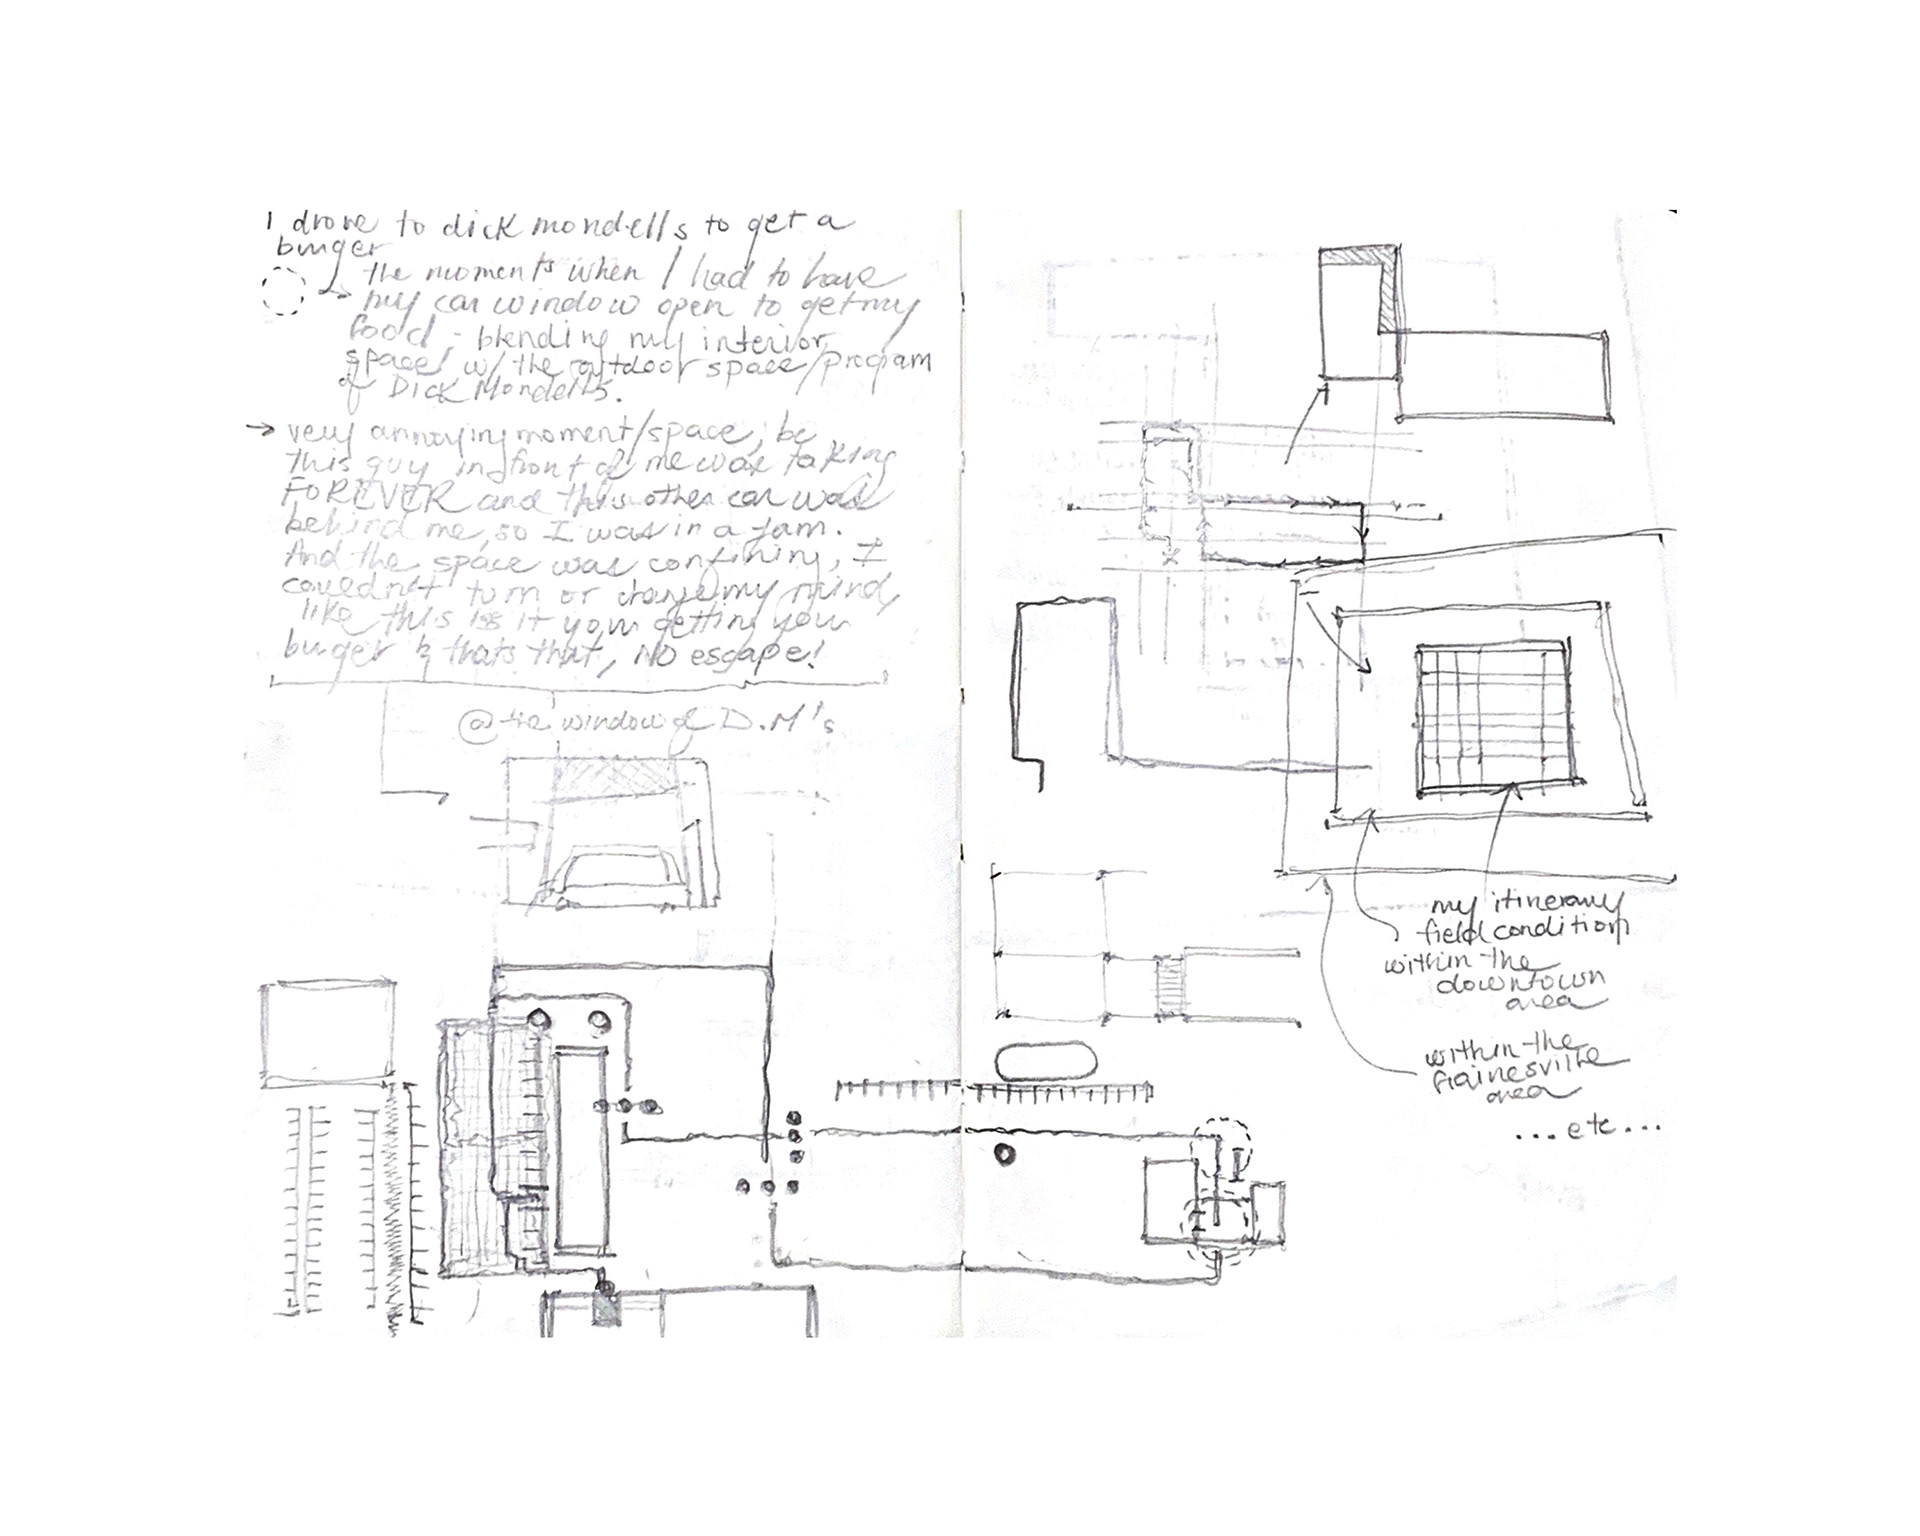 I drove to dick mondells to get a
burger
the moments when I had to have
my car window open to get my
food - blending my interior
space w/ the outdoor space/program
of Dick Mondells.
→ very annoying moment/space, bc
this guy in front of me was taking
FOREVER and this other car was
behind me, so I was in a jam.
And the space was confining, I
could not turn or change my mind,
like this is it your getting your
burger & thats that, NO escape!
@ the window of D.M's
my itinerary
field condition
within the
downtown
area
within the
Gainesville
area
...etc...